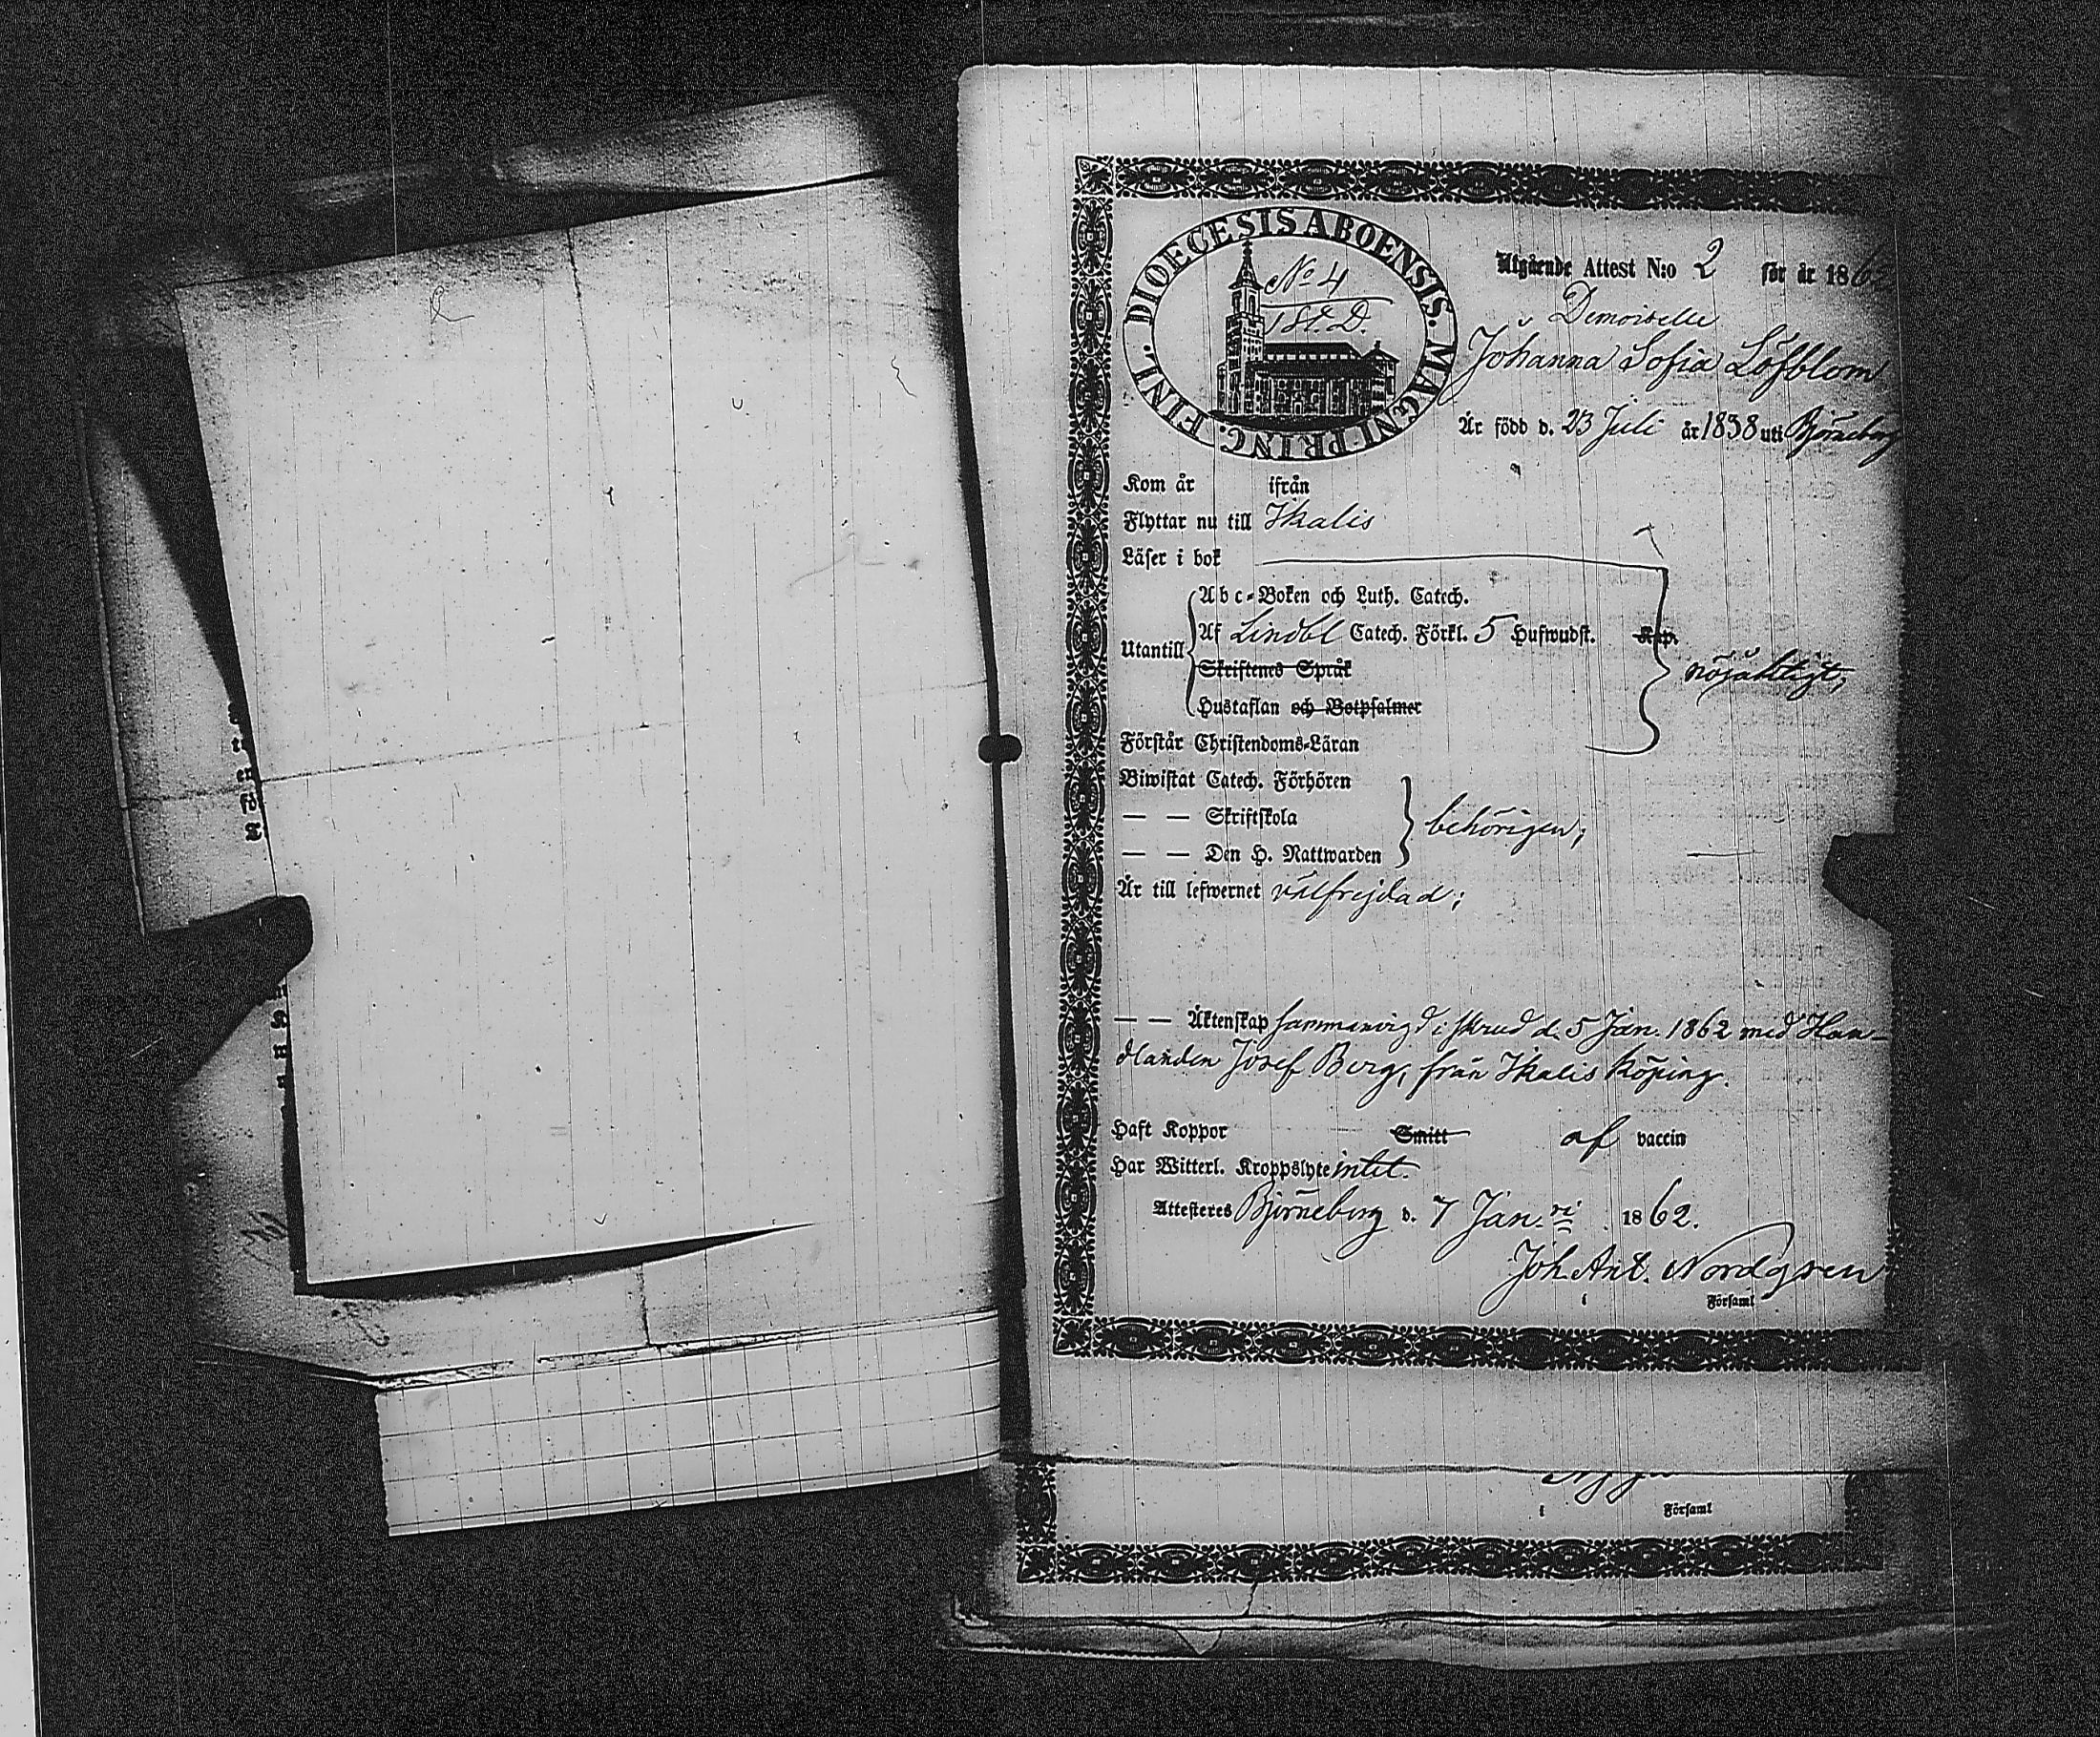 DIOECESIS ABOENSIS. MAGNI PRINC. FINL.
No 4
1 St. D.
Utgående Attest N:o 2 för år 1862
Demoiselle
Johanna Sofia Löfblom
Är född d. 23 Juli år 1838 uti Björneborg
Kom år ifrån
Flyttar nu till Ikalis
Läser i bok
Utantill
Abc-Boken och Luth. Catech.
Af Lindbl Catech. Förkl. 5 Hufwudst. Kap.
Skriftenes Språk
Hustaflan och Botpsalmer
nöjaktligt;
Förstår Christendoms-Läran
Biwistat Catech. Förhören
— — Skriftskola
behörigen;
— — Den H. Nattwarden
Är till lefwernet välfrejdad;
— — Äktenskap sammanvigd i skrud d. 5 Jan. 1862 med Han-
dlanden Josef Berg, från Ikalis Köping.
Haft Koppor Smitt af vaccin
Har Witterl. Kroppslyte intet.
Attesteres Björneborg d. 7 Jan:ri 1862.
Joh. Ant. Nordgren
i Församl
i Församl